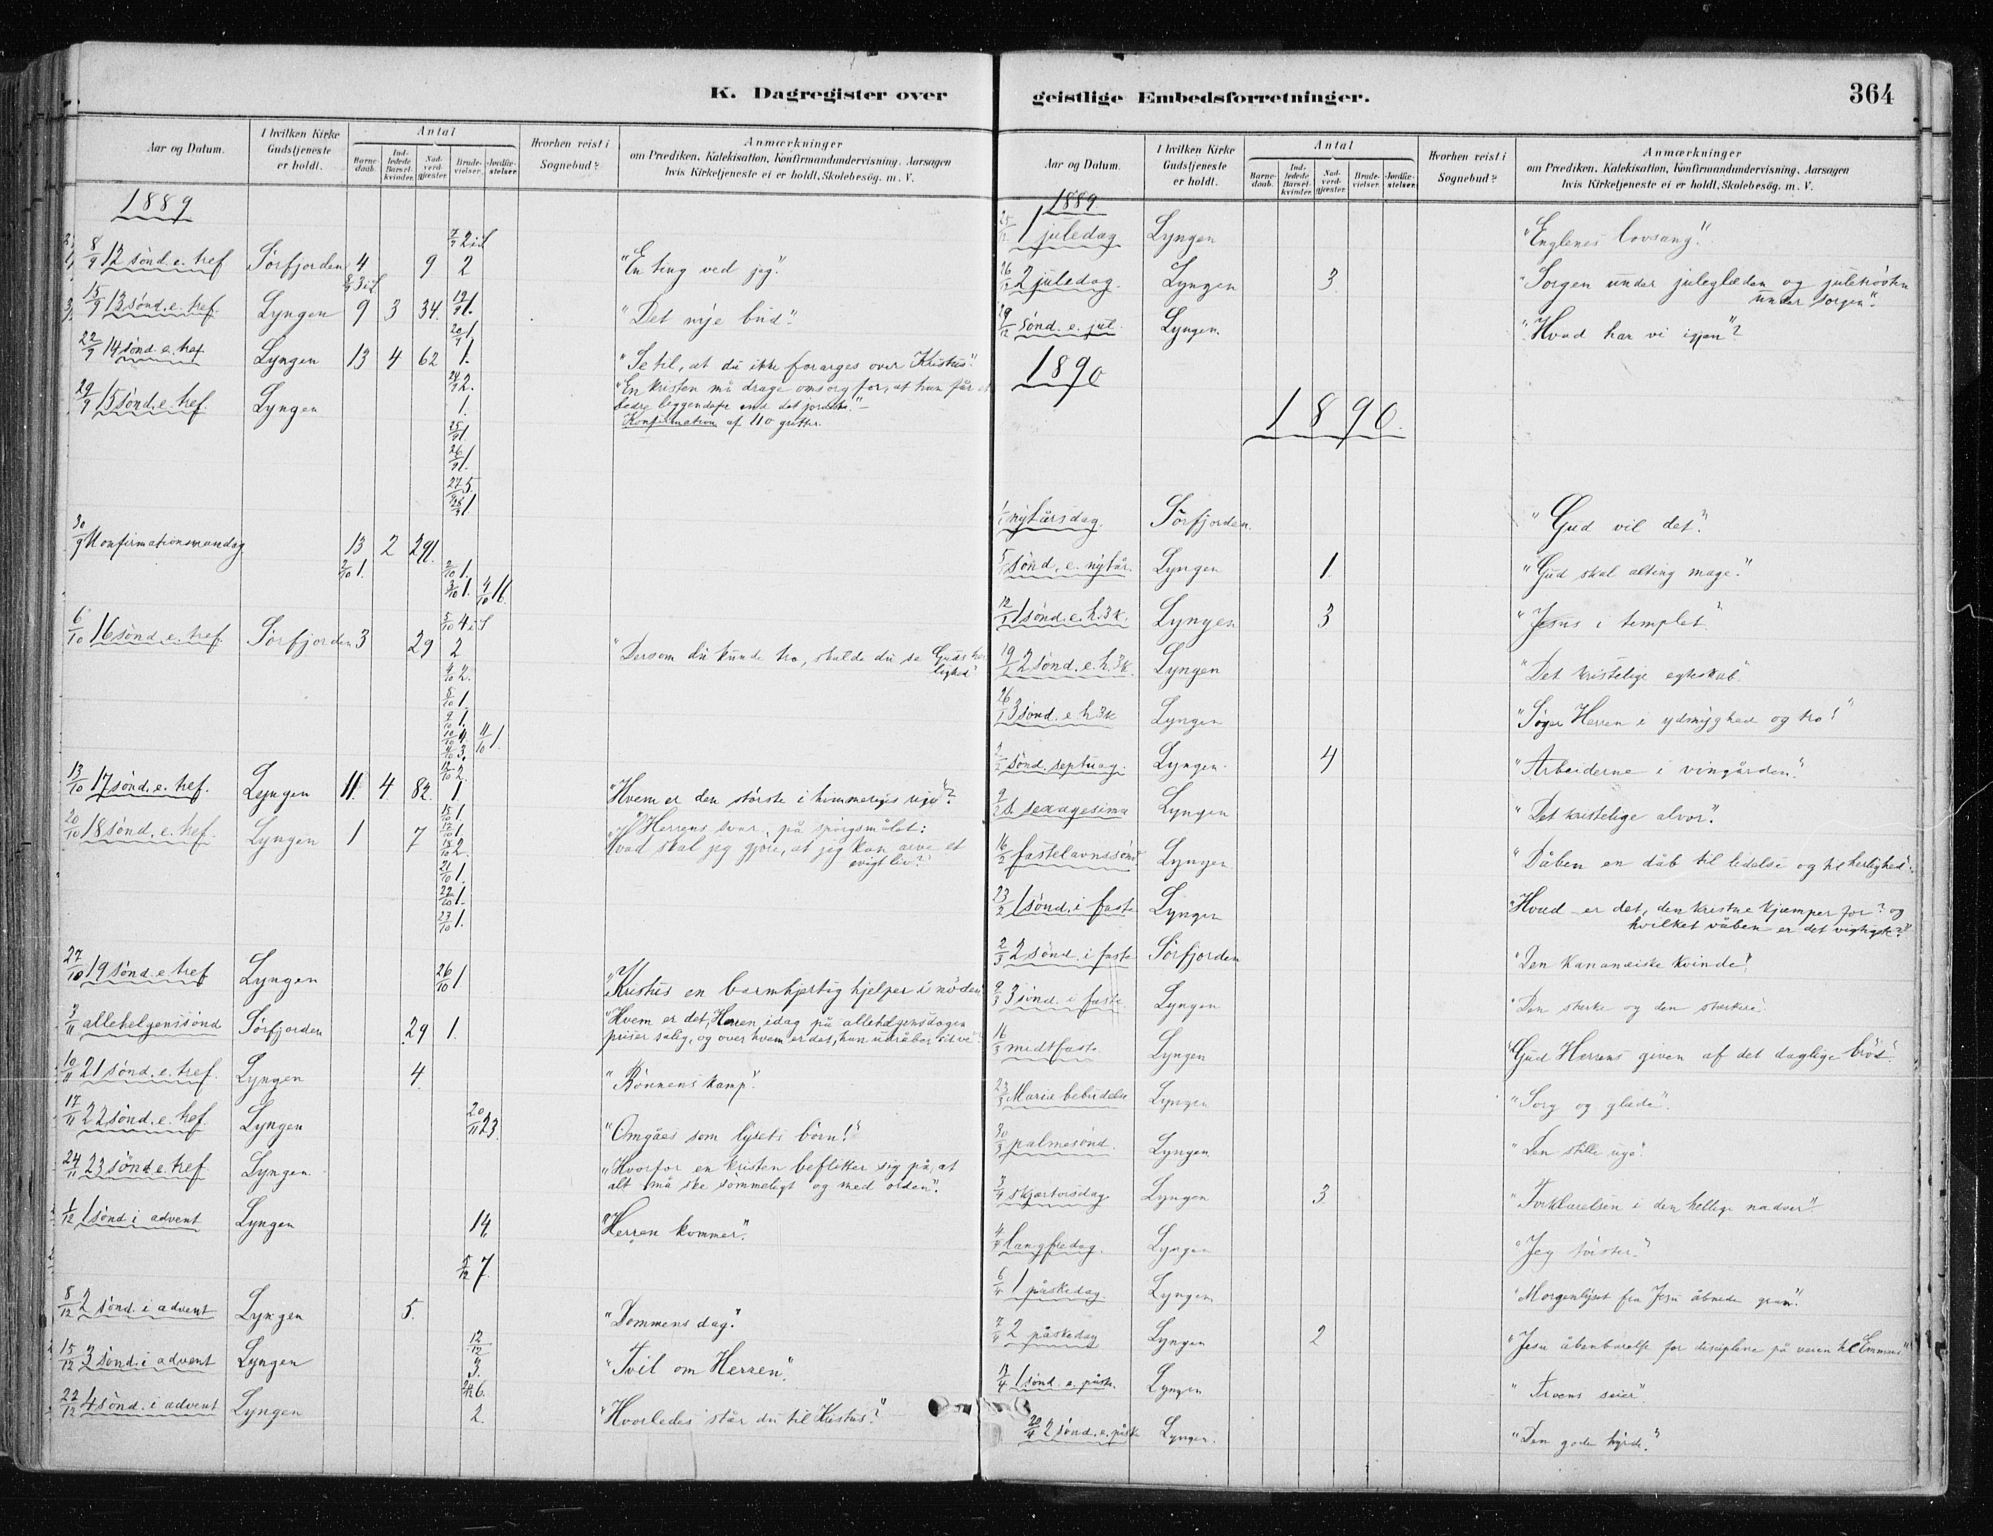 K. Dagregister over
geistlige Embedsforretninger.
364
Aar og Datum.
I hvilken Kirke Gudstjeneste er holdt.
Antal
Barne-daab.
Ind-ledede Barsel-kvinder.
Nad-verd-gjester.
Brude-vielser.
Jordfæ-stelser.
Hvorhen reist i Sognebud?
Anmærkninger
om Prædiken, Katekisation, Konfirmandundervisning, Aarsagen
hvis Kirketjeneste ei er holdt, Skolebesøg. m. V.
1889
7/9 2 i L
8/9 12 sønd. e. tref Sørfjorden 4 9 2 "En ting ved jeg."
8/9 3 i L
15/9 13 sønd. e. tref. Lyngen 9 3 34. 19/9 1. "Det nye bud".
20/9 1
22/9 14 sønd. e. tref Lyngen 13 4 62 1. "Se til, at du ikke forarges over Kristus".
24/9 2.
29/9 15 sønd. e. tref. Lyngen 1. "En kristen må drage omsorg for, at han får et
bedre beggendafe end det jordiske." –
Konfirmation af 110 grøtter.
25/9 1.
26/9 1.
27/9 5.
28/9 1
30/9 Konfirmationsmandag 13 2 291
2/10 1. 2/10 1.
3/10 1. 4/10 16.
5/10 4 i S
6/10 16 sønd. e. tref. Sørfjorden 3 29 2 "Dersom du kunde tro, skulde du se Guds her
lighed"
8/10 1.
9/10 1.
11/10 1
13/10 17 sønd. e. tref. Lyngen 11. 4 82. 1 "Hvem er den største i himmeriges rige"?
15/10 1.
20/10 18 sønd. e. tref. Lyngen 1 7 "Herrens svar på spørgsmålet:
hvad skal jeg gjøre, at jeg kan arve et
evigt liv?"
18/10 2.
21/10 1.
22/10 1.
23/10 1.
27/10 19 sønd. e. tref Lyngen 26/10 1 "Kristus en barmhjertig hjelper i nøden"
3/11 allehelgenssønd Sørfjorden 29 1. "Hvem er det, Herren idag på allehelgensdagen
priser salig, og over hvem er det, han udråber sit ve"?
10/11 21 sønd. e. tref. Lyngen 4. "Bønnens kamp".
17/11 22 sønd. e. tref. Lyngen 20/11 23. "Omgåes som lysets børn!"
24/11 23 sønd. e. tref. Lyngen "Hvorfor en kristen beflitter sig på, at
alt må ske sømmeligt og med orden".
1/12 1 sønd i advent Lyngen 14 "Herren kommer".
5/12 7.
8/12 2 sønd. i advent Lyngen 5. "Dommens dag."
12/12
15/12 3 sønd. i advent Lyngen 3. "Tvil om Herren".
6.
22/12 4 sønd. i advent Lyngen 2. "Hvorledes står du til Kristus?"
Aar og Datum.
I hvilken Kirke Gudstjeneste er holdt.
Antal
Barne-daab.
Ind-ledede Barsel-kvinder.
Nad-verd-gjester.
Brude-vielser.
Jordfæ-stelser.
Hvorhen reist i Sognebud?
Anmærkninger
om Prædiken, Katekisation, Konfirmandundervisning, Aarsagen
hvis Kirketjeneste ei er holdt, Skolebesøg. m. V.
1889.
25/12 1 juledag Lyngen "Englenes lovsang".
26/12 2 juledag. Lyngen 3. "Sorgen under juleglæden og juletrøsten
under sorgen".
29/12 sønd. e. jul. Lyngen. "Hvad har vi igjen"?
1890
1890.
1/1 nytårsdag. Sørfjorden. "Gud vil det".
5/1 sønd. e. nytår. Lyngen 1. "Gud skal alting mage."
12/1 1 sønd. e. h. 3 k. Lyngen 3 "Jesus i templet".
19/1 2 sønd. e. h. 3 k. Lyngen "Det kristelige egteskab".
26/1 3 sønd. e h 3 k Lyngen "Søger Herren i ydmyghed og tro!"
2/2 sønd. septuag. Lyngen. 4 "Arbeiderne i vingården."
9/2 s. sexagesima Lyngen "Det kristelige alvor".
16/2 fastelavnssønd Lyngen "Dåben en dåb til lidelse og til herlighed".
23/2 1 sønd. i faste Lyngen "Hvad er det, den kristne kjæmper for? og
hvilket våben er det vigtigste?"
2/3 2 sønd. i faste Sørfjorden "Den kananæiske kvinde".
9/3 3 sønd. i faste Lyngen "Den sterke og den stærkere".
16/3 midtfaste Lyngen "Gud Herrens given af det daglige brød".
23/3 Mariæ bebudelse Lyngen "Sorg og glæde".
30/3 palmesønd. Lyngen "Den stille uge".
3/4 skjærtorsdag Lyngen 3 "Forklarelsen i den hellige nadver".
4/4 langfredag. Lyngen "Jeg tørster."
6/4 1 påskedag. Lyngen "Morgenlyset fra Jesu åbnede grav".
7/4 2 påskedag Lyngen 2 "Jesu åbenbarelse for disciplene på veien til Emmaus"
13/4 1 sønd. e. påske. Lyngen "Troens seier"
20/4 2 sønd. e. påsk Lyngen. "Den gode hyrde."